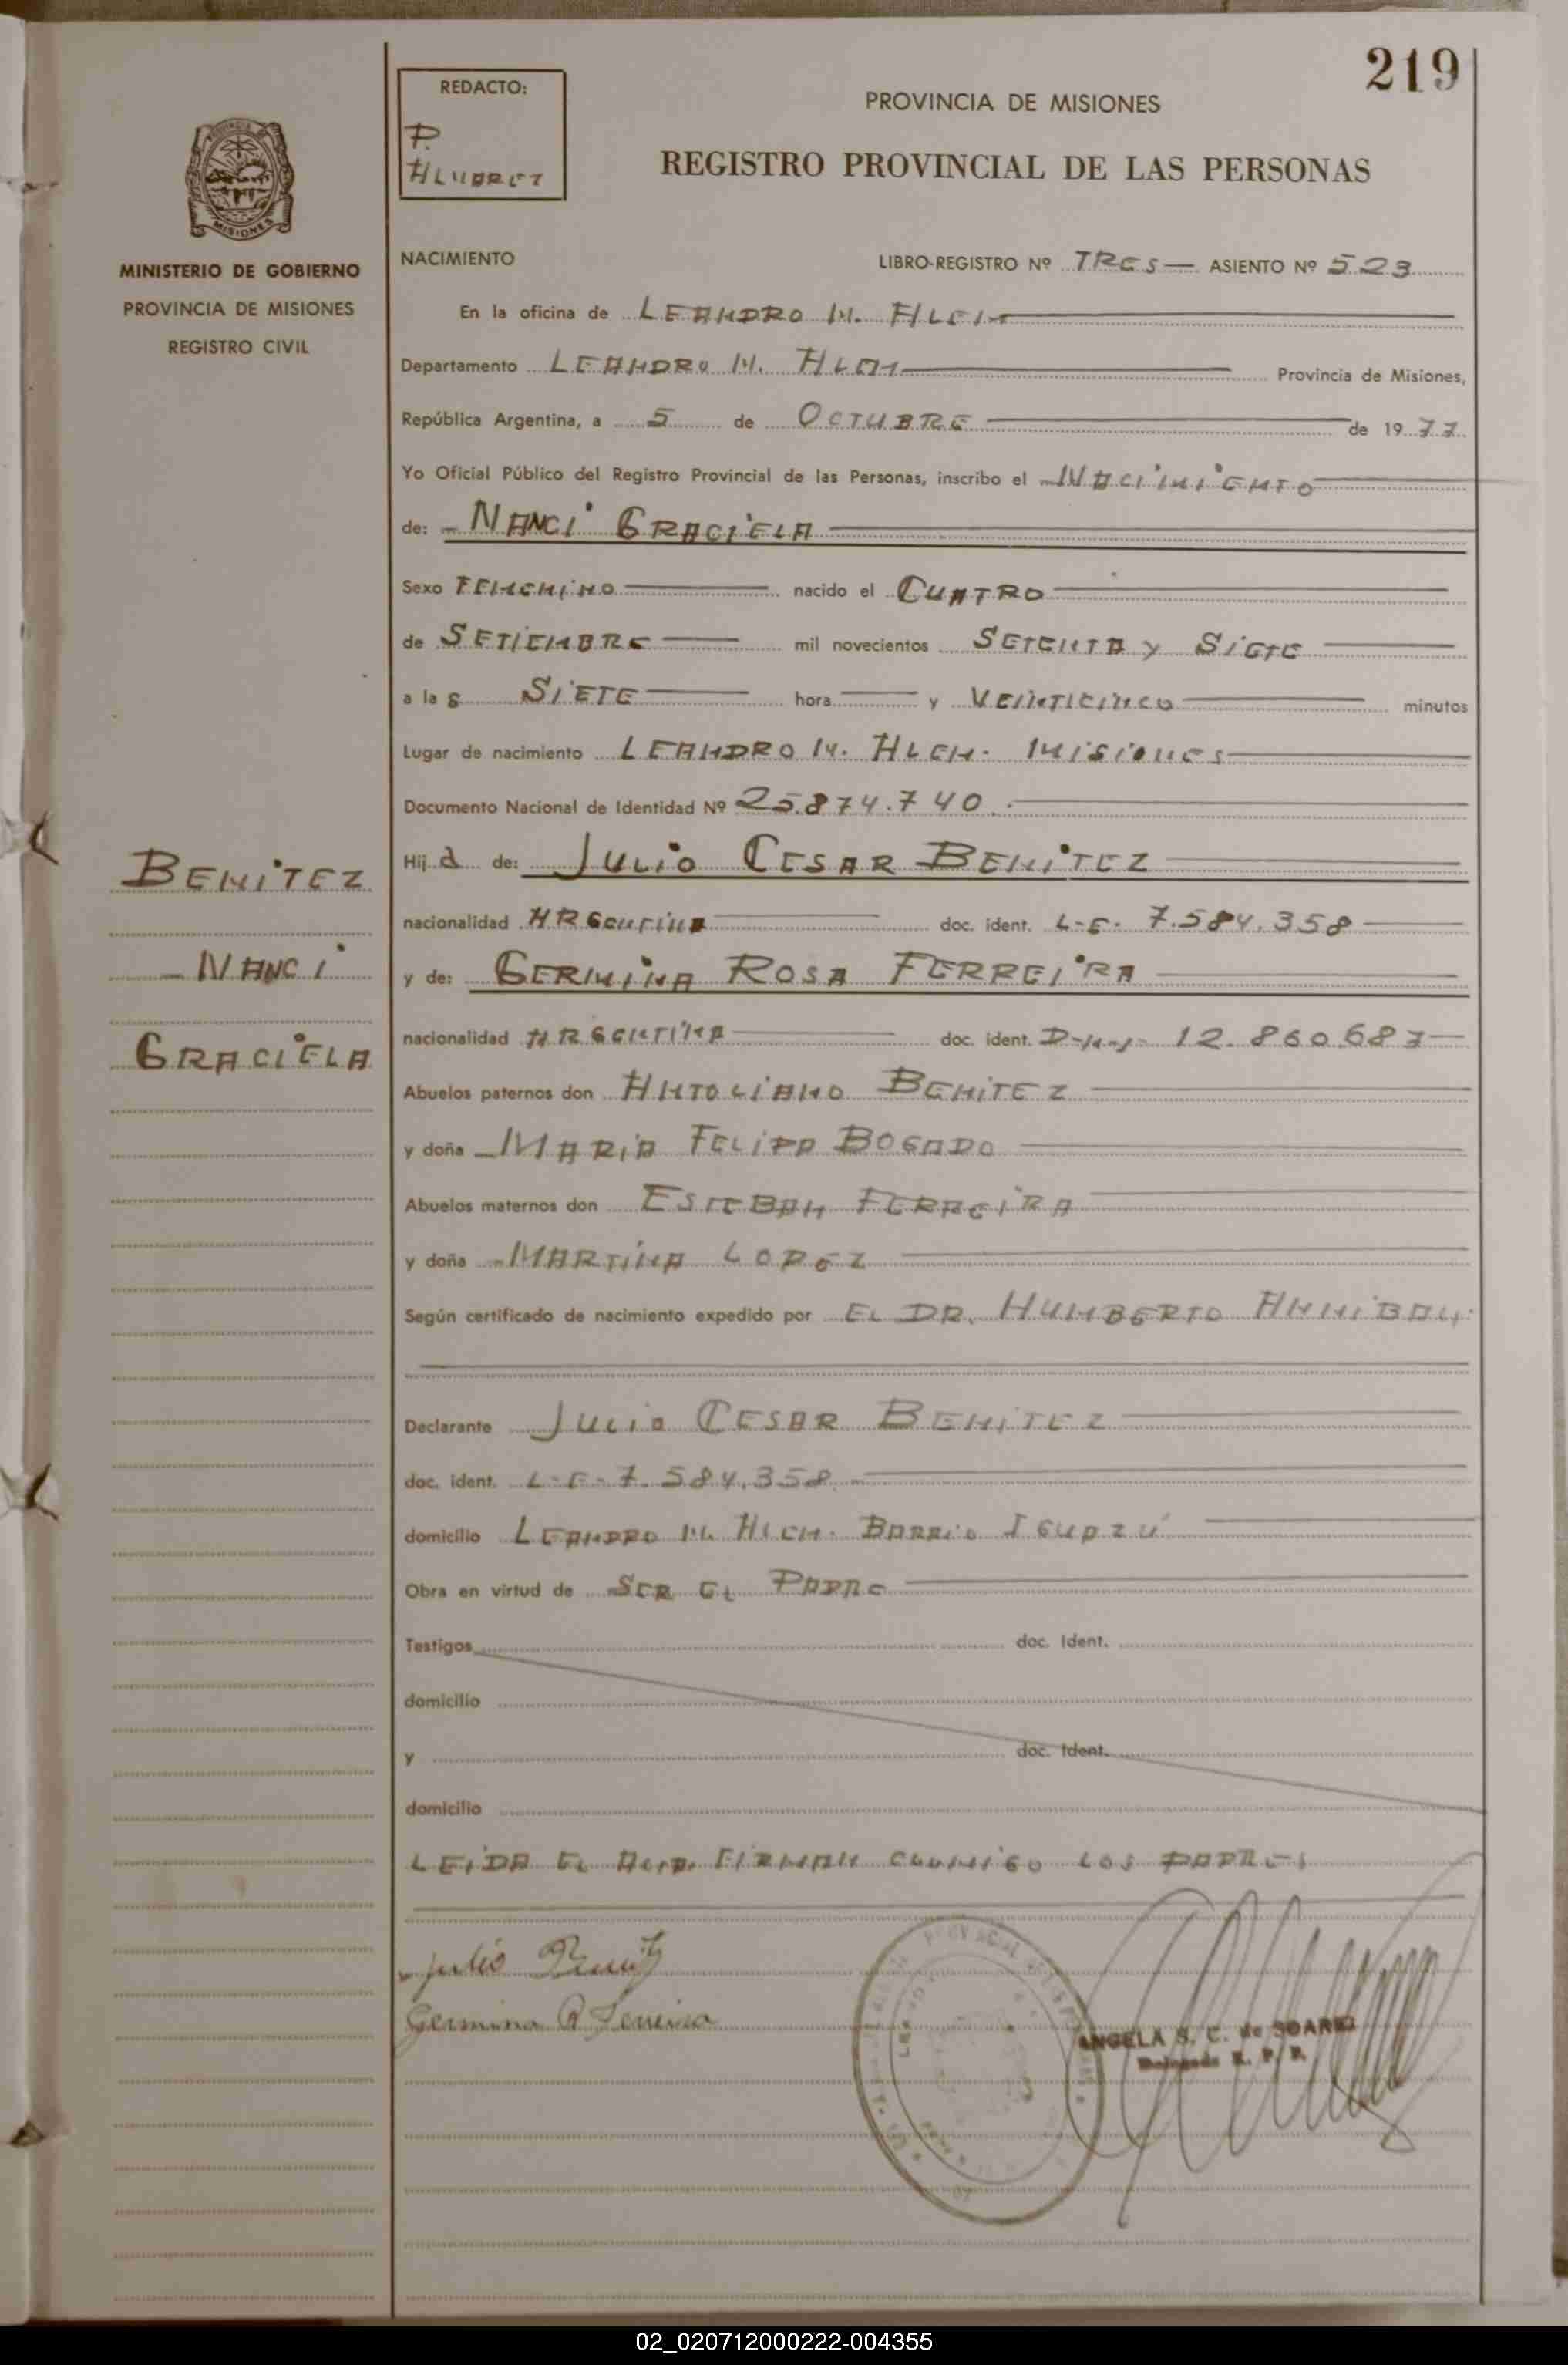 219
REDACTO:
P.
ALVAREZ
PROVINCIA DE MISIONES
REGISTRO PROVINCIAL DE LAS PERSONAS
MISIONES
MINISTERIO DE GOBIERNO
PROVINCIA DE MISIONES
REGISTRO CIVIL
NACIMIENTO LIBRO-REGISTRO Nº TRES ASIENTO Nº 523
En la oficina de LEANDRO N. ALEM
Departamento LEANDRO N. ALEM Provincia de Misiones,
República Argentina, a 5 de OCTUBRE de 1977
Yo Oficial Público del Registro Provincial de las Personas, inscribo el NACIMIENTO
de: NANCI GRACIELA
Sexo FEMENINO nacido el CUATRO
de SETIEMBRE mil novecientos SETENTA Y SIETE
a las SIETE hora y VEINTICINCO minutos
Lugar de nacimiento LEANDRO N. ALEM. MISIONES
Documento Nacional de Identidad Nº 25.874.740.
BENITEZ
NANCI
GRACIELA
Hija de: JULIO CESAR BENITEZ
nacionalidad ARGENTINA doc. ident. L-E- 7.584.358
y de: GERMINA ROSA FERREIRA
nacionalidad ARGENTINA doc. ident. D-N-I- 12.860.687
Abuelos paternos don ANTOLIANO BENITEZ
y doña MARIA FELIPA BOGADO
Abuelos maternos don ESTEBAN FERREIRA
y doña MARTINA LOPEZ
Según certificado de nacimiento expedido por EL DR. HUMBERTO
Declarante JULIO CESAR BENITEZ
doc. ident. L-E-7.584.358
domicilio LEANDRO N. ALEM. BARRIO IGUAZÚ
Obra en virtud de SER EL PADRE
Testigos doc. Ident.
domicilio
y doc. Ident.
domicilio
LEIDA EL ACTA FIRMAN CONMIGO LOS PADRES
Julio Benitez
Germina R Ferreira
ANGELA S. C. de SOAREZ
Delegada R. P. P.
02_020712000222-004355